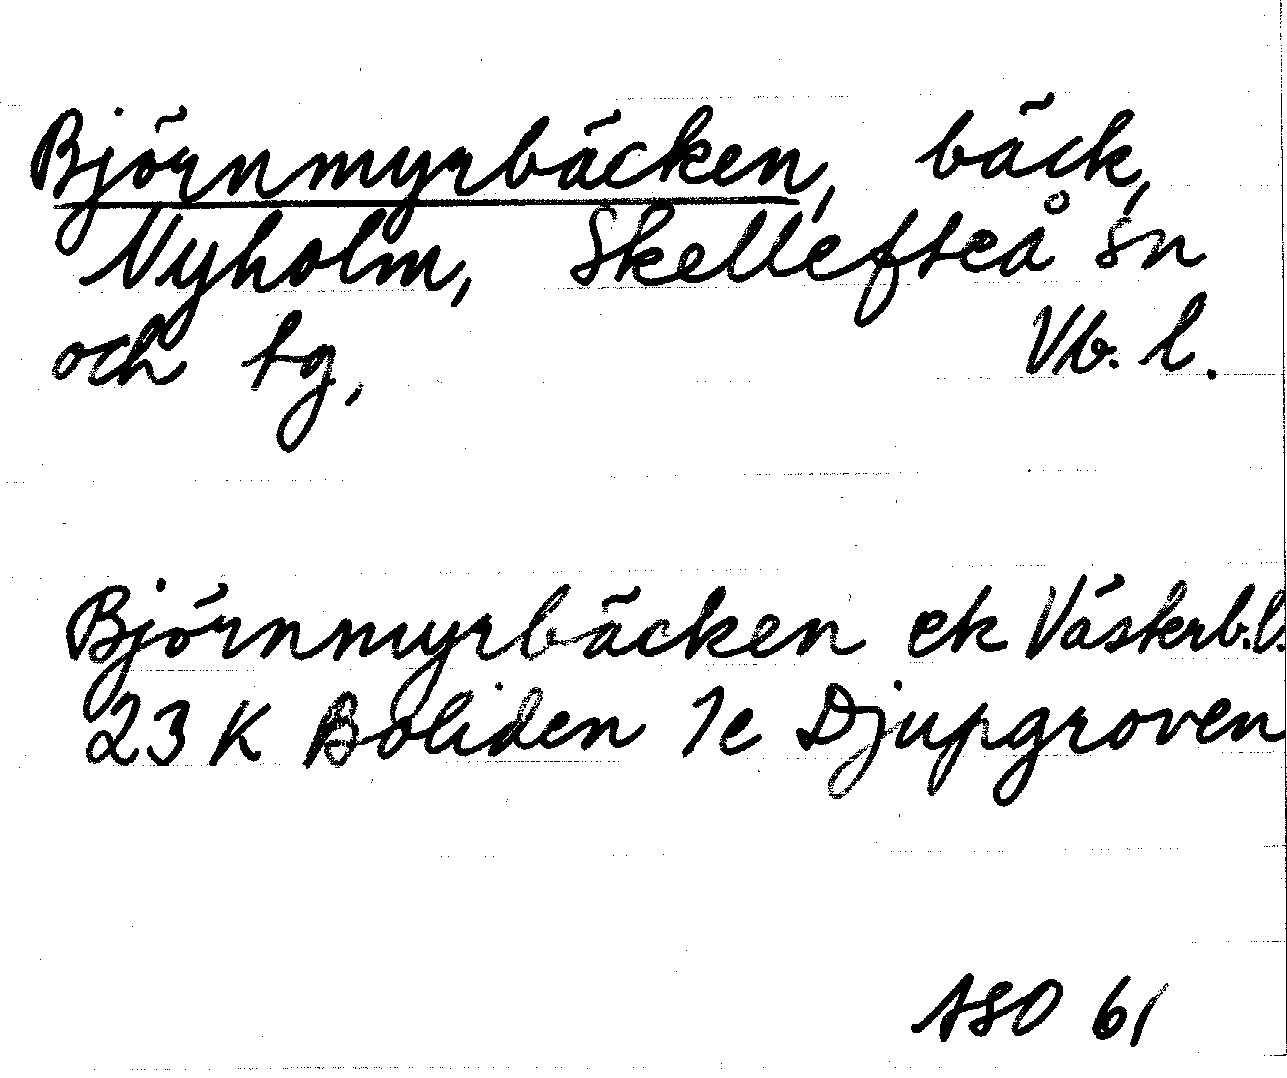 Björnmyrbäcken, bäck,
Nyholm, Skellefteå sn
och tg, Vb. l.
Björnmyrbäcken ek Västerb. l.
23 K Boliden 1e Djupgroven
ASO 61